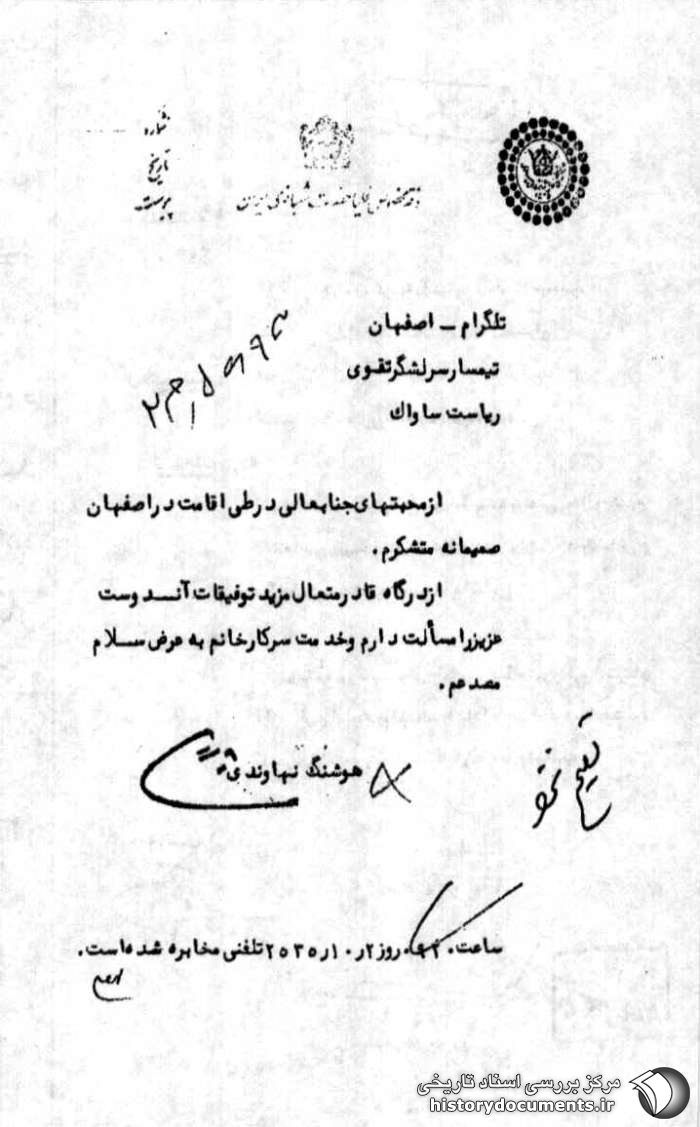 شماره
تاریخ
پیوست
دفتر مخصوص علیاحضرت شهبانوی ایران
تلگرام - اصفهان
تیمسار سرلشگر تقوی
ریاست ساواک
از محبتهای جنابعالی در طی اقامت در اصفهان
صمیمانه متشکرم.
از درگاه قادر متعال مزید توفیقات آندوست
عزیز را مسألت دارم و خدمت سرکار خانم به عرض سلام
مصدعم.
هوشنگ نهاوندی
ساعت روز ۲ر۱۰ر۲۵۳۵ تلفنی مخابره شده است.
مرکز بررسی اسناد تاریخی
historydocuments.ir